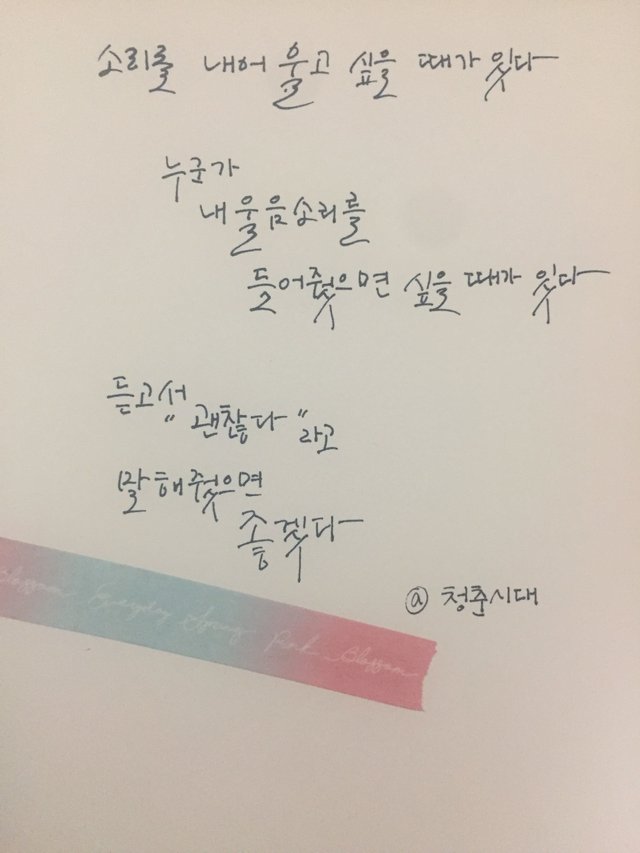 소리를 내어 울고 싶을 때가 있다
누군가
내 울음소리를
들어줬으면 싶을 때가 있다
듣고서
"괜찮다"라고
말해줬으면
좋겠다
@ 청춘시대
Blossom Everyday Spring Pink Blossom